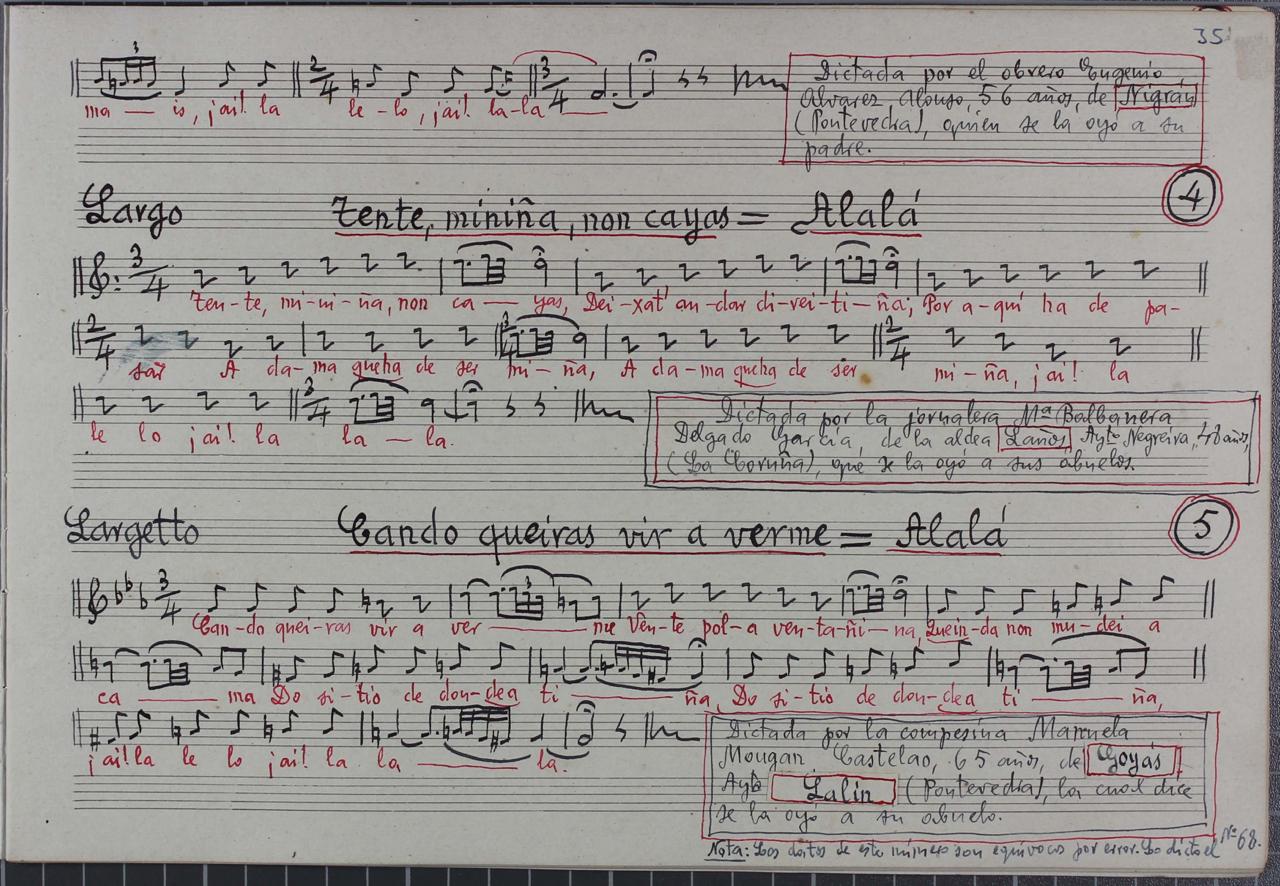 35
3
2/4
3/4
ma — is, ¡ai! la le-lo, ¡ai! la-la —
Dictada por el obrero Eugenio
Alvarez Alonso, 56 años, de Nigrán
(Pontevedra), quien se la oyó a su
padre.
Largo Tente, miniña, non cayas = Alalá 4
3/4
Ten-te, mi-ni-ña, non ca — yas, Dei-xat' an-dar di-rei-ti-ña; Por a-quí ha de pa-
2/4 3/4 2/4
sar A da-ma queha de ser mi-ña, A da-ma queha de ser mi-ña, ¡ai! la
3/4
le lo ¡ai! la la — la.
Dictada por la jornalera Mª Balbanera
Delgado García, de la aldea Laños, Aytº Negreira, 48 años,
(La Coruña), que se la oyó a sus abuelos.
Largetto Cando queiras vir a verme = Alalá 5
3/4 3
Can-do quei-ras vir a ver — me Ven-te pol-a ven-ta-ñi-na, Quein-da non mu-dei a
ca — ma Do si-tio de don-dea ti — ña, Do si-tio de don-dea ti — ña,
¡ai! la le lo ¡ai! la la — la.
Dictada por la campesina Manuela
Mougan Castelao, 65 años, de Goyás
Aytº Lalín (Pontevedra), la cual dice
se la oyó a su abuelo.
Nota: Los datos de este número son equívocos por error. Lo dictó el Nº 68.